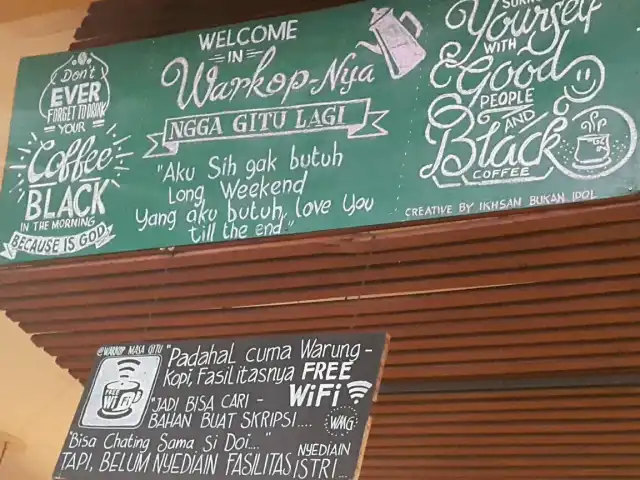 Don't
EVER
FORGET TO DRINK
YOUR
Coffee
BLACK
IN THE MORNING
BECAUSE IS GOD
WELCOME
IN
Warkop-Nya
NGGA GITU LAGI
"Aku Sih gak butuh
Long Weekend
Yang aku butuh, love You
till the end."
Yourself
WITH
Good
PEOPLE
AND
Black
COFFEE
CREATIVE BY IKHSAN BUKAN IDOL
@WARKOP MASA GITU
FREE
WiFi
"Padahal cuma Warung-
Kopi, Fasilitasnya FREE
WiFi
"JADI BISA CARI -
BAHAN BUAT SKRIPSI....
WMG
"Bisa Chating Sama Si Doi...."
TAPI, BELUM NYEDIAIN FASILITAS NYEDIAIN
ISTRI...